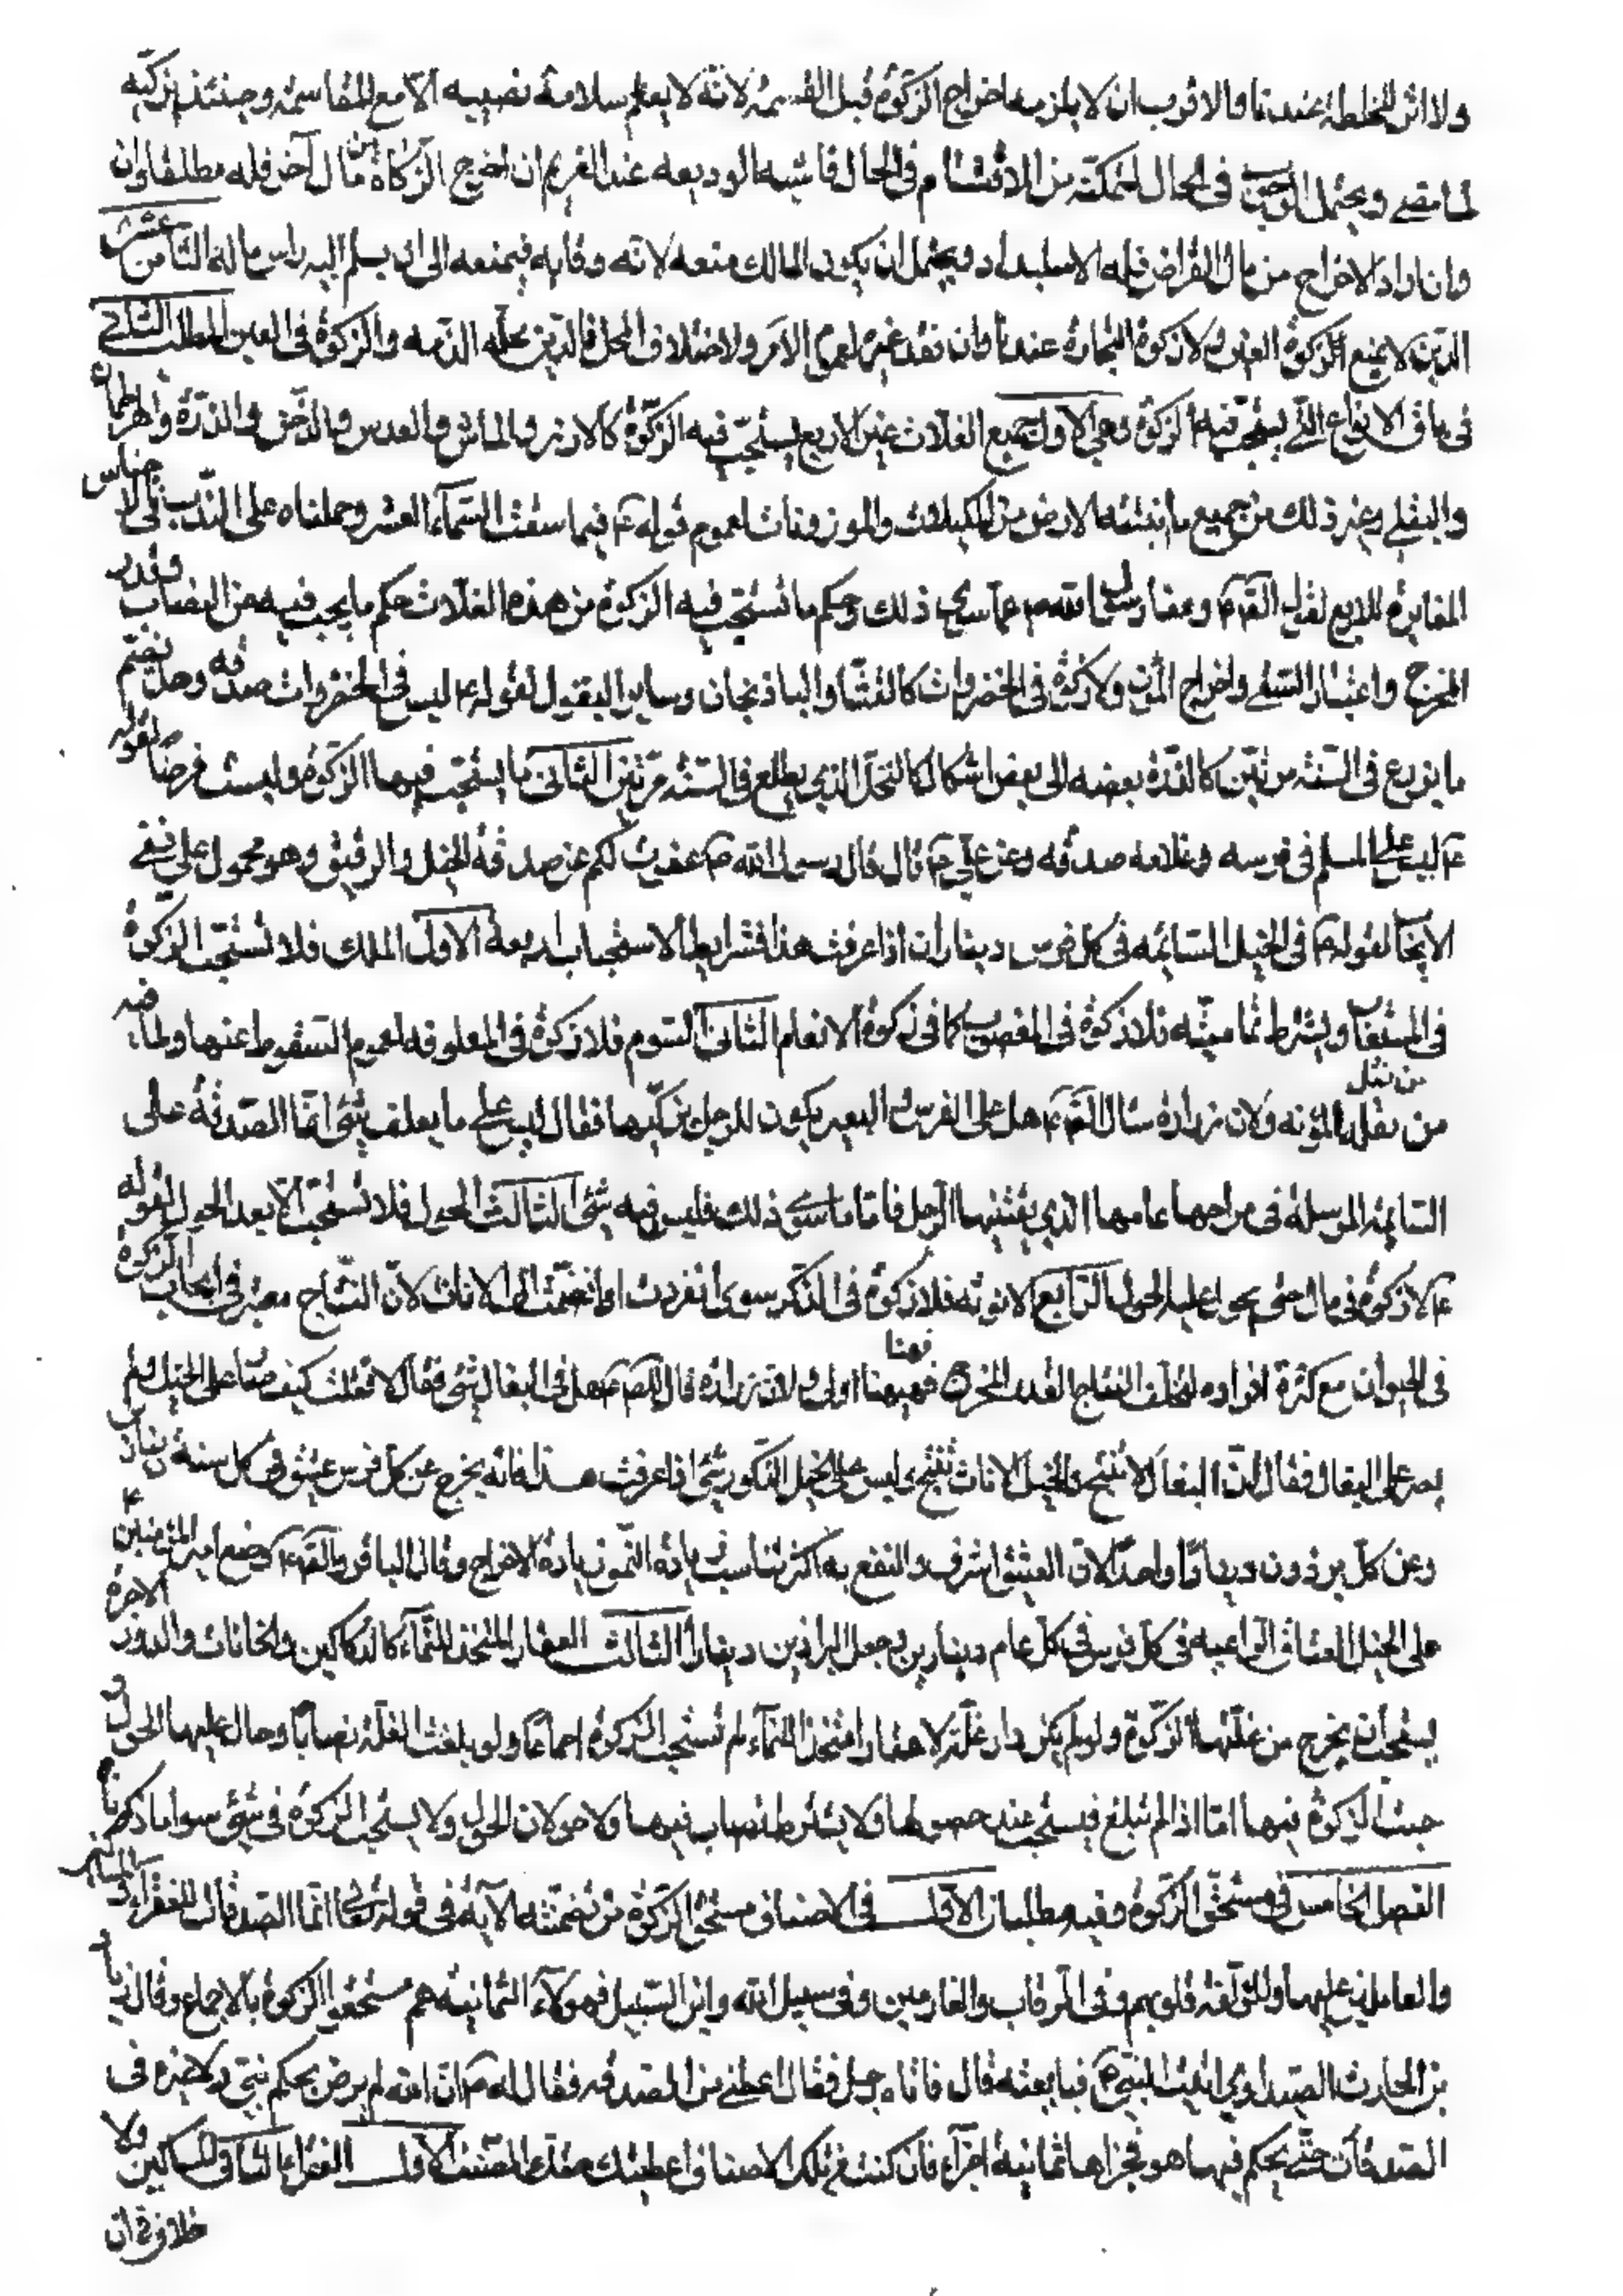 ولا اثر للخلطة عندنا والاقرب ان لا يلزمه اخراج الزكوة قبل القسمة لانه لا يعلم سلامة نصيبه الا مع المقاسمة وحينئذ يزكيه
لما مضى ويحتمل الوجوب في الحال لتمكنه من الاقتسام في الحال فاشبه الوديعه عند الغريم ان اخرج الزكاة من مال آخر فله مطلقا وان
وان اراد الاخراج من مال القراض فله الاستبداد ويحتمل ان يكون للمالك منعه لانه وقايه فيمنعه الى ان يسلم اليه راس ماله الثامن عشر
الدين لا يمنع الزكوة العين ولا زكوة التجارة عندنا وان فقد غيره لعموم الامر ولاختلاف المحل فالدين محله الذمه والزكوة في العين المطلب الثاني
في باقي الانواع التي يستحب فيها الزكوة وهي الاول جميع الغلات غير الاربع يستحب فيه الزكوة كالارز والماش والعدس والدخن والذرة والهرطمان
والبقلي وغير ذلك من جميع ما تنبته الارض من المكيلات والموزونات لعموم قوله ع فيما سقت السماء العشر وحملناه على الندب في الاجناس
المغايرة للاربع لقول الصم ع وعفا رسول الله ص عما سوى ذلك وحكم ما تستحب فيه الزكوة من هذه الغلات حكم ما يجب فيه من النصاب وقدر
المخرج واعتبار السقي واخراج المؤن ولا زكوة في الخضروات كالقثا والباذنجان وساير البقول لقوله ع ليس في الخضروات صدقه وهل يضم
ما يزرع في السنة مرتين كالذرة بعضه الى بعض اشكال كالنخل الذي يطلع في السنة مرتين الثاني ما يستحب فيها الزكوة وليست فرضا لقوله
ع ليس على المسلم في فرسه وغلامه صدقه وعن علي ع قال قال رسول الله ص عفوت لكم عن صدقة الخيل والرقيق وهو محمول على نفي
الايجاب لقوله ع في الخيل السائمه في كل فرس ديناران اذا عرفت هذا فشرايط الاستحباب اربعة الاول الملك فلا تستحب الزكوة
في المستعار ويشترط تماميته فلا زكوة في المغصوب كما في زكوة الانعام الثاني السوم فلا زكوة في المعلوفه لعموم السقوط عنها ولما فيه
من ثقل المؤنه ولان زرارة سال الصم ع هل على الفرس او البعير يكون للرجل يركبها فقال ليس على ما يعلف شئ انما الصدقة على
السايمة المرسلة في مراحها عامها الذي يقتنيها الرجل فاما ما سوى ذلك فليس فيه شئ الثالث الحول فلا تستحب الا بعد الحول لقوله
ع لا زكوة في مال حتى يحول عليه الحول الرابع الانوثه فلا زكوة في الذكر سوى انفردت او انضمت الى الاناث لان النتاج معتبر في ايجاب الزكوة
في الحيوان مع كثرة افراده لتخلف النتاج القدر المخرج فهيهنا اولى ولان زرارة قال للصم ع هل في البغال شئ فقال لا فقلت كيف صار على الخيل ولم
يصر على البغال فقال لان البغال لا تنتج والخيل الاناث تنتج وليس على الخيل الذكور شئ اذا عرفت هذا فانه يخرج عن كل فرس عتيق في كل سنة ديناران
وعن كل برذون دينارًا واحدًا لان العتيق اشرف والنفع به اكثر فناسب زيادة النمو زيادة الاخراج وقال الباقر والصم ع وضع امير المؤمنين ع
على الخيل العتاق الراعيه في كل فرس في كل عام دينارين وجعل البراذين دينارا الثالث العقار المتخذ للنماء كالدكاكين والخانات والدور الاجرة
يستحب ان يخرج من غلتها الزكوة ولو لم يكن دار غلة ولا عقار اتخذ للنماء لم تستحب الزكوة اجماعًا ولو بلغت الغلة نصابًا وحال عليها الحول و
جبت الزكوة فيها اما اذا لم تبلغ فيستحب عند حصولها ولا يشترط نصاب فيها ولا حولان الحول ولا يستحب الزكوة في شئ سوا ما ذكرناه
الفصل الخامس في مستحق الزكوة وفيه مطلبان الاول في الاصناف مستحق الزكوة من تضمنته الآية في قوله تعالى انما الصدقات للفقراء والمساكين
والعاملين عليها والمؤلفة قلوبهم وفي الرقاب والغارمين وفي سبيل الله وابن السبيل فهؤلاء الثمانية هم مستحقوا الزكوة بالاجماع وقال زياد
بن الحارث الصدايي اتيت النبي ص فبايعته قال فاتاه رجل فقال اعطني من الصدقه فقال له ص ان الله لم يرض بحكم نبي ولا غيره في
الصدقات حتى حكم فيها هو فجزاها ثمانية اجزاء فان كنت من تلك الاصناف اعطيتك حقك الصنف الاول الفقراء الثاني المساكين ولا
خلاف في ان